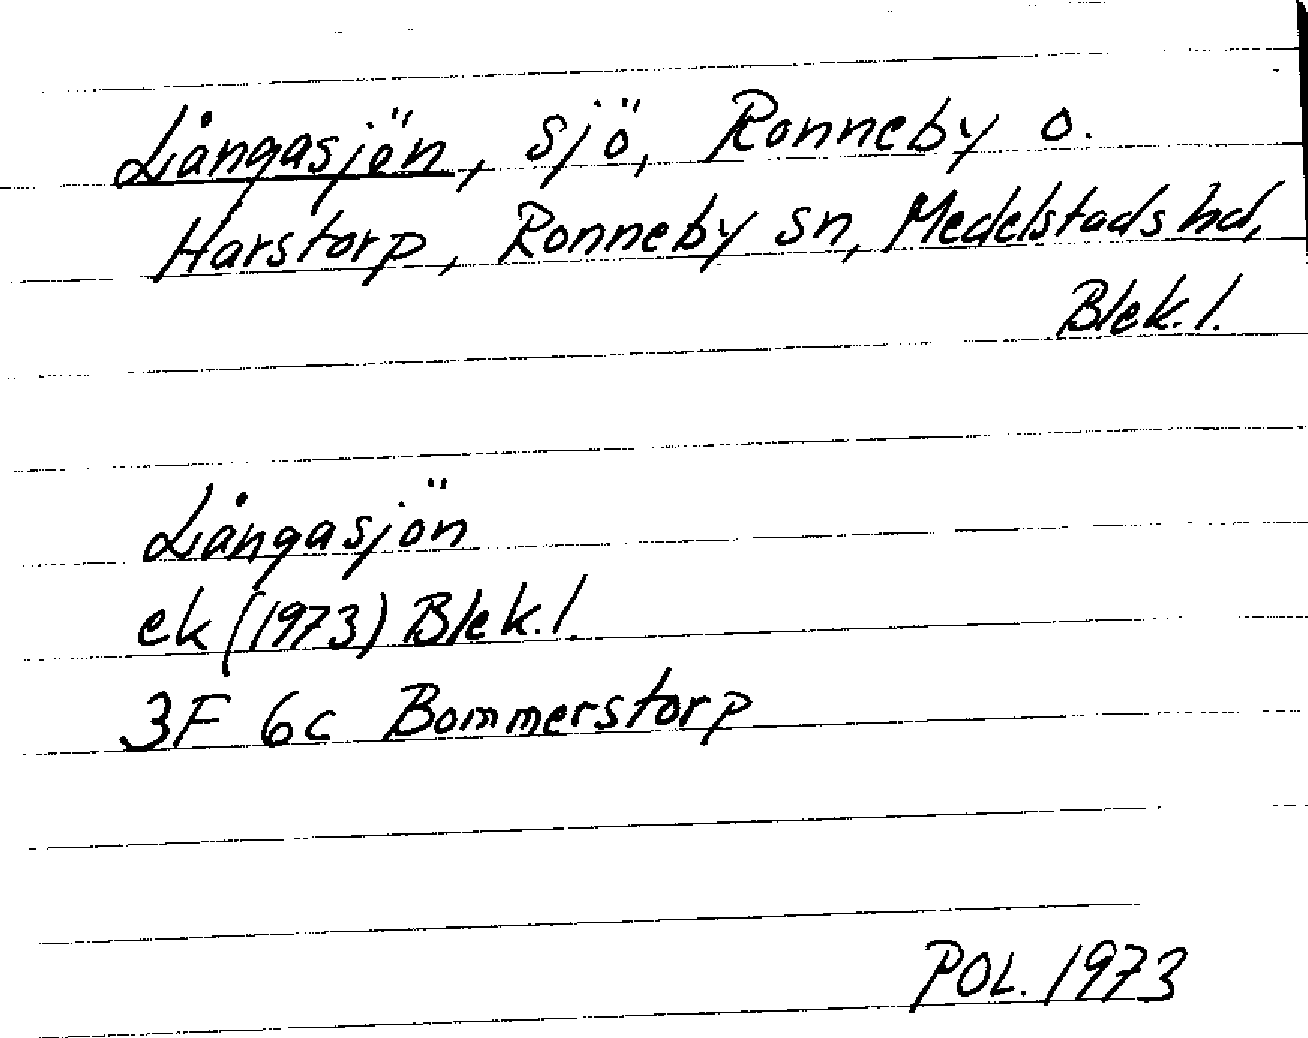 Långasjön, sjö, Ronneby o.
Harstorp, Ronneby sn, Medelstads hd,
Blek. l.
Långasjön
ek (1973) Blek. l.
3F 6c Bommerstorp
POL. 1973